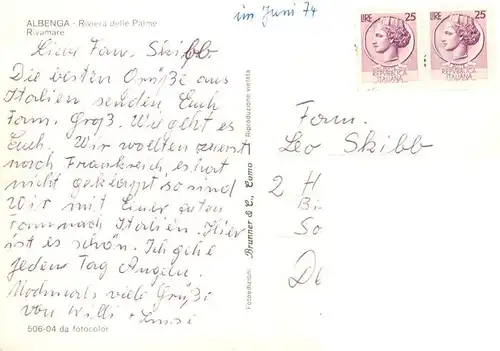 ALBENGA - Riviera delle Palme
Rivamare
im Juni 74
LIRE 25
REPUBBLICA
ITALIANA
LIRE 25
REPUBBLICA
ITALIANA
Liebe Fam. Skibb
Die besten Grüße aus
Italien senden Euch
Fam. Groß. Wie geht es
Euch. Wir wollten zuerst
nach Frankreich es hat
nicht geklappt so sind
Wir mit Einer guten
nach Italien. Hier
ist es schön. Ich gehe
jeden Tag Angeln.
Nochmals viele Grüße
von Willi +
506-04 da fotocolor
Fotoedizioni Brunner & C., Como Riproduzione vietata
Fam.
Leo Skibb
2 H
Bi
So
De